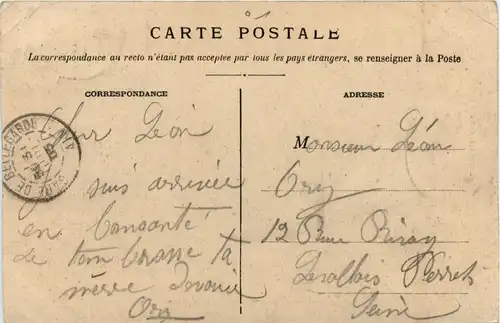 CARTE POSTALE
La correspondance au recto n'étant pas acceptée par tous les pays étrangers, se renseigner à la Poste
CORRESPONDANCE
Cher Léon
je suis arrivée
en bonsanté
de ton brasse ta
mère
Ory
ADRESSE
Monsieur Léon
Ory
12 Rue
Levallois Perret
Seine
GARE DE BELLEGARDE AIN